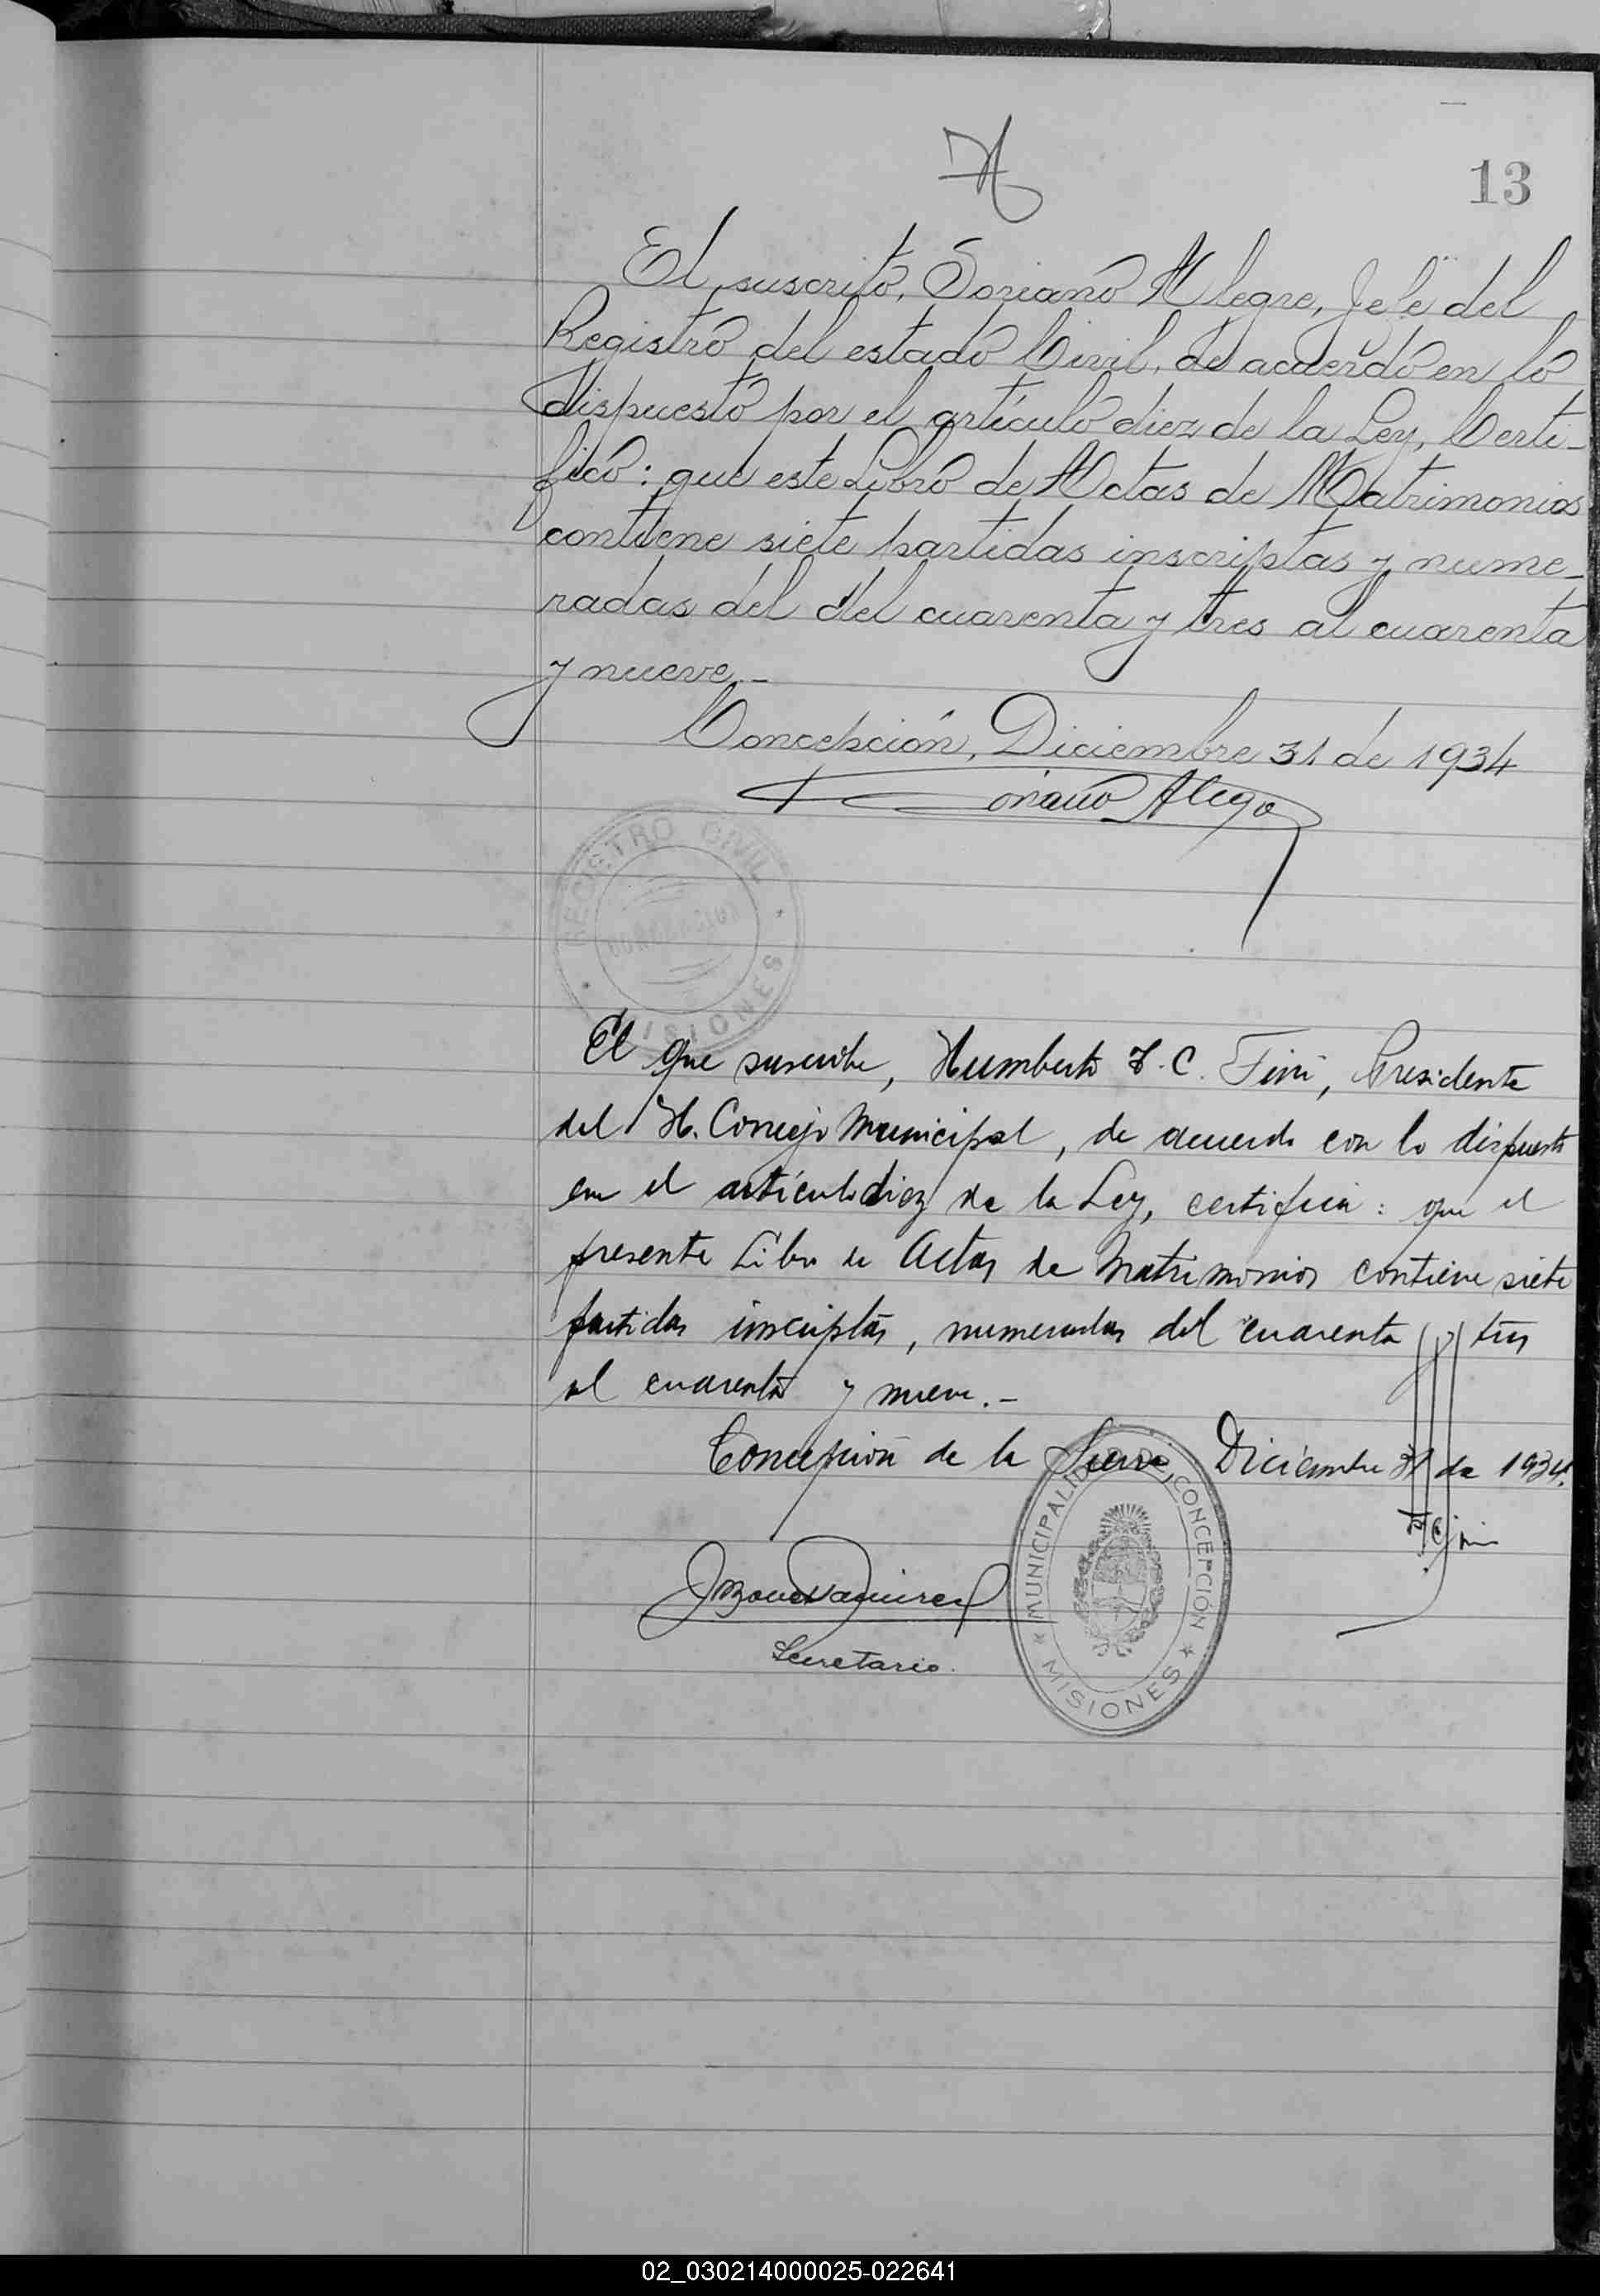 13
El suscrito, Soriano Alegre, Jefe del
Registro del estado Civil, de acuerdo en lo
dispuesto por el artículo diez de la Ley, Certi-
fico: que este Libro de Actas de Matrimonios
contiene siete partidas inscriptas y nume-
radas del del cuarenta y tres al cuarenta
y nueve.-
Concepción, Diciembre 31 de 1934
Soriano Alegre
REGISTRO CIVIL
CONCEPCION
MISIONES
El que suscribe, Humberto F. C. Fini, Presidente
del H. Concejo Municipal, de acuerdo con lo dispuesto
en el artículo diez de la Ley, certifica: que el
presente Libro de Actas de Matrimonios contiene siete
partidas inscriptas, numeradas del cuarenta y tres
al cuarenta y nueve.-
Concepción de la Sierra, Diciembre 31 de 1934.
MUNICIPALIDAD DE CONCEPCIÓN
MISIONES
Secretario.
02_030214000025-022641